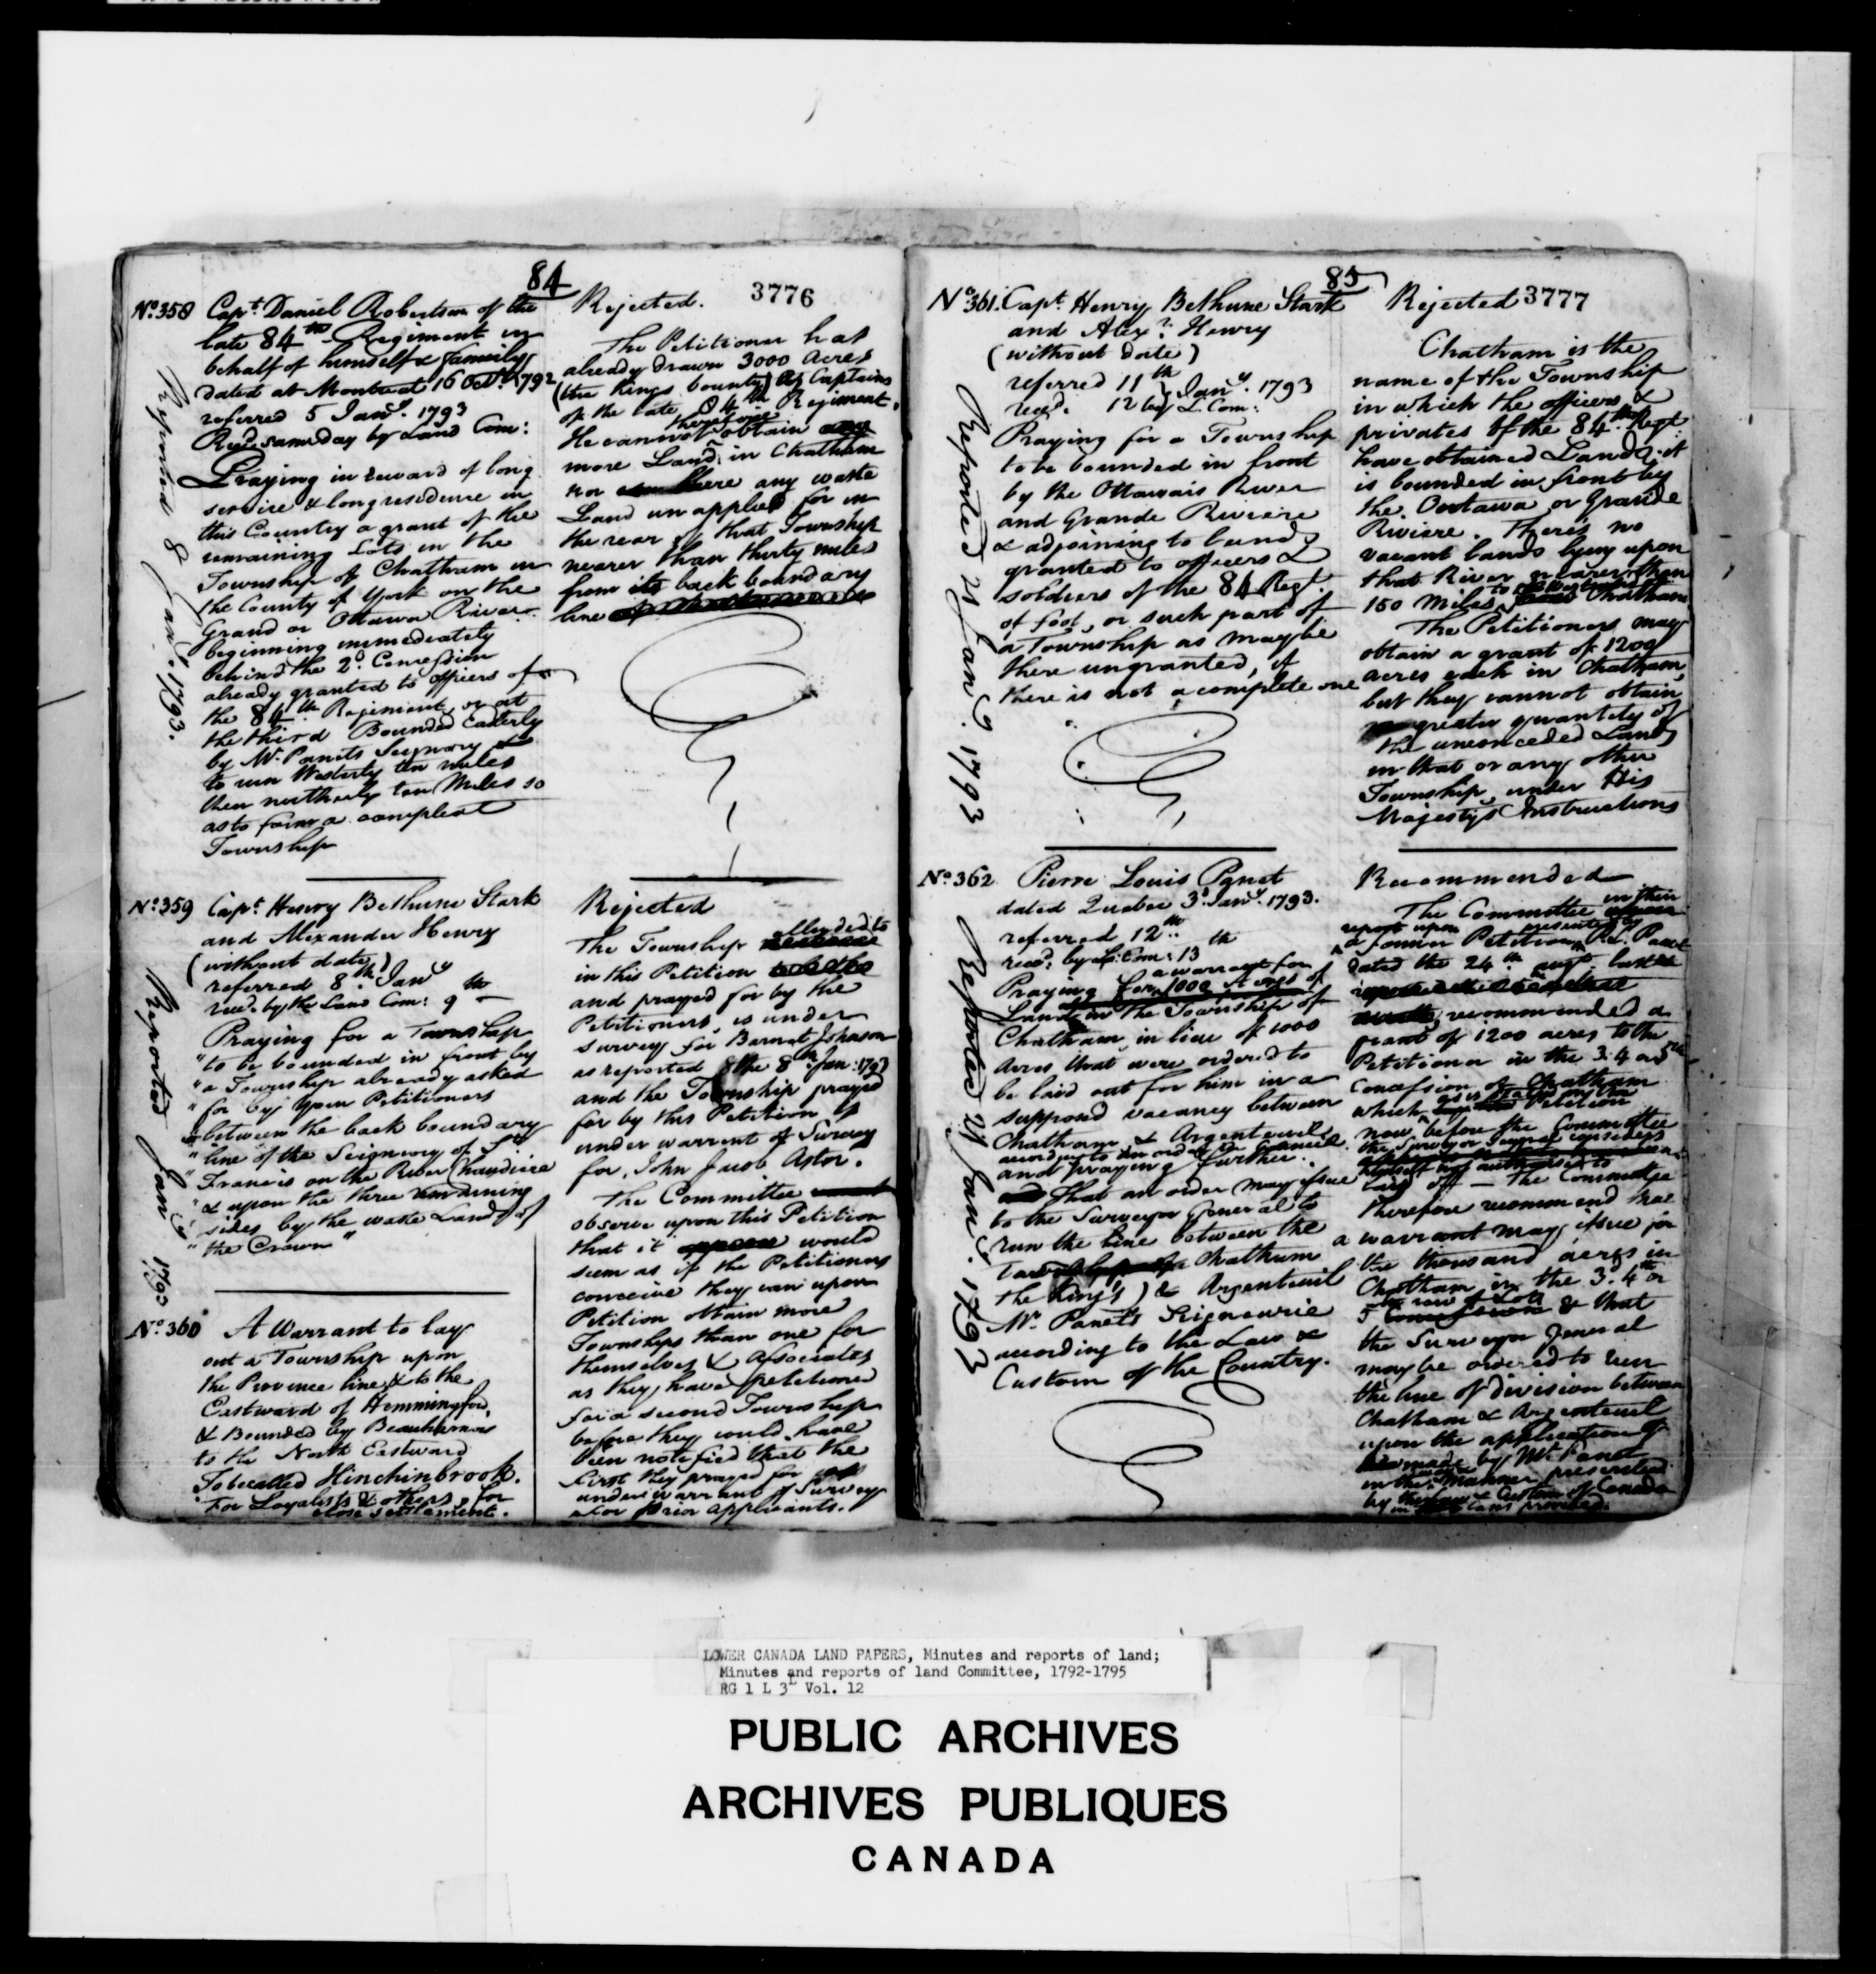 84
3776
No. 358 Capt. Daniel Robertson of the
late 84th Regiment in
behalf of himself & family
dated at Montreal 16 Octr. 1792
referred 5 Jany. 1793
Recd. same day by Land Com:
Praying in reward of long
service & long residence in
this Country a grant of the
remaining Lots in the
Township of Chatham in
the County of York on the
Grand or Ottawa River
beginning immediately
behind the 2d. Concession
already granted to officers of
the 84th. Regiment, or at
the third Bounded Easterly
by Mr. Panets Seignory &
to run Westerly ten miles
then northerly ten Miles so
as to form a compleat
Township
Reported 8 Jany. 1793.
Rejected.
The Petitioner has
already drawn 3000 Acres
(the Kings bounty) as Captains
of the late 84th Regiment.
therefore
He cannot obtain any
more Land in Chatham
nor there any waste
Land unapplied for in
the rear of that Township
nearer than thirty miles
from its back boundary
line
No. 359 Capt. Henry Bethune Stark
and Alexander Henry
(without date)
referred 8th. Jany
recd. by the Land Com: 9th
Praying for a Township
"to be bounded in front by
"a Township already asked
"for by your Petitioners
"between the back boundary
"line of the Seignory of St.
"Francis on the River Chaudiere
"& upon the three remaining
"sides by the waste Lands of
"the Crown"
Reported Jany 1793
Rejected
allended to
The Township
in this Petition
and prayed for by the
Petitioners, is under
survey for Barnet Johnson
as reported the 8th Jan: 1793
and the Township prayed
for by this Petition is
under warrant of Survey
for John Jacob Astor.
The Committee
observe upon this Petition
that it appears would
seem as if the Petitioners
conceive they can upon
Petition obtain more
Townships than one for
themselves & Associates
as they have petitioned
for a second Township
before they would have
been notified that the
first they prayed for was
under warrant of Survey
for prior applicants.
No. 360 A Warrant to lay
out a Township upon
the Province line & to the
Eastward of Hemmingford,
& Bounded by Beauharnois
to the North Eastward
To be called Hinchinbrook.
For Loyalists & others, for
close settlement.
85
3777
No. 361. Capt. Henry Bethune Stark
and Alexr. Henry
(without date)
referred 11th } Jany. 1793
recd. 12 by L. Com:
Praying for a Township
to be bounded in front
by the Ottawais River
and Grande Riviere
& adjoining to lands
granted to officers &
soldiers of the 84 Regt.
of foot, or such part of
a Township as may be
there ungranted, if
there is not a complete one
Reported 21 Jany. 1793
Rejected
Chatham is the
name of the Township
in which the officers &
privates of the 84th. Regt.
have obtained Lands; it
is bounded in front by
the Outawa or Grande
Riviere. There's no
vacant lands lying upon
that River nearer than
150 miles to Chatham
The Petitioners may
obtain a grant of 1200
acres each in Chatham,
but they cannot obtain
greater quantity of
the unconceded Lands
in that or any other
Township under His
Majesty's Instructions
No. 362 Pierre Louis Panet
dated Quebec 3d. Jany. 1793.
referred 12th.
recd. by L: Com: 13th
a warrant for
Praying for 1000 Acres of
Land in the Township of
Chatham, in lieu of 1000
Acres that were ordered to
be laid out for him in a
supposed vacancy between
Chatham & Argenteuil
according to an order in Council
and praying further.
That an order may issue
to the Surveyor General to
run the line between the
Township of Chatham
the King's) & Argenteuil
Mr. Panet's Seigneurie
according to the Law &
Custom of the Country.
Reported 21 Jany. 1793
Recommended
in their
The Committee
report upon presented by
a former Petition P. L. Panet
dated the 24th. augt. last
recommended a
grant of 1200 acres to the
Petitioner in the 3. 4 or 5th
Concession of Chatham
which as is stated in the Petition
now before the Committee
the Surveyor General considers
himself not authorised to
lay off — The Committee
therefore recommend that
a warrant may issue for
the thousand acres in
Chatham in the 3d. 4th or
row of Lots
5 Concession & that
the Surveyor General
may be ordered to run
the line of division between
Chatham & Argenteuil
upon the application of
made by Mr. Panet
in the Manner prescribed
by the Law & Custom of Canada
in cases provided.
LOWER CANADA LAND PAPERS, Minutes and reports of land;
Minutes and reports of land Committee, 1792-1795
RG 1 L 3L Vol. 12
PUBLIC ARCHIVES
ARCHIVES PUBLIQUES
CANADA